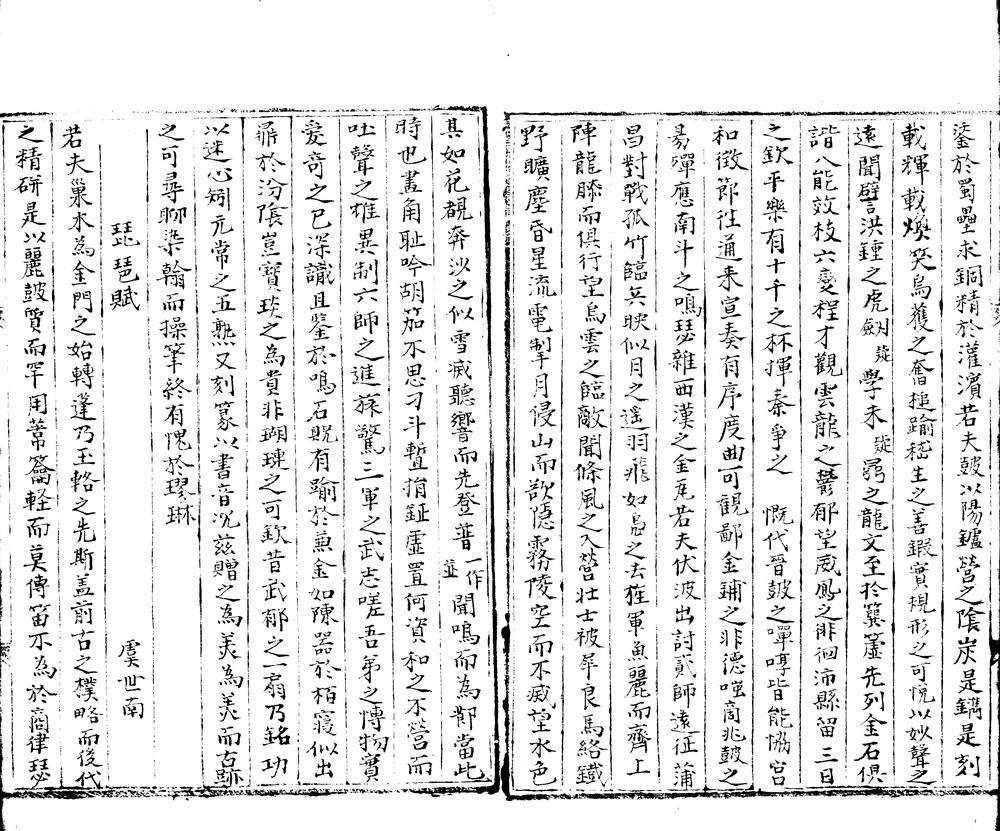 鍌於蜀壘求銅精於灌濱若夫鼓以陽鑪營之陰炭是鐫是刻
載輝載煥笑烏獲之奮搥踰嵇生之善鍜實規形之可悅以妙聲之
遠聞譬洪鍾之虎劒疑學未疑弱之龍文至於簨簴先列金石俱
諧八能效枝六變程才觀雲龍之鬱郁望威鳳之徘徊沛縣留三日
之飲平樂有十千之杯揮秦爭之慨代晉皷之嘽啍皆能恊宮
和徵節往通来宣奏有序度曲可觀鄙金鏞之非德嗤啇兆鼓之
易殫應南斗之鳴瑟雜西漢之金丸若夫伏波出討貳師遠征蒲
昌對戰孤竹臨兵映似月之遥羽飛如㫕之去旌軍魚麗而齊上
陣龍膝而俱行望烏雲之臨敵聞條風之入營壮士被犀良馬絡鐵
野曠塵昏星流電掣月侵山而欲隱霧陵空而不㓕望水色
其如花覩奔沙之似雪㓕聽響而先登普一作並聞鳴而為鄣當此
時也畫角耻吟胡笳不思刁斗暫捐鉦虛置何資和之不營而
吐聲之雄異制六師之進旅驚三軍之武志嗟吾弟之博物實
愛奇之已深識且鉴於鳴石貺有踰於蒹金如陳噐於栢寢似出
鼎於汾陰豈寶琰之為貴非瑚璉之可欽昔武都之一扇乃銘功
以迷心矧元常之五熟又刻篆以書音况兹贈之為美為美而古跡
之可尋聊染翰而操筆終有愧於璆琳
琵琶賦 虞世南
若夫巢水為金門之始轉蓬乃玉輅之先斯盖前古之樸略而後代
之精研是以麗皷質而罕用䓀籥軽而莫傳笛不為於啇律瑟